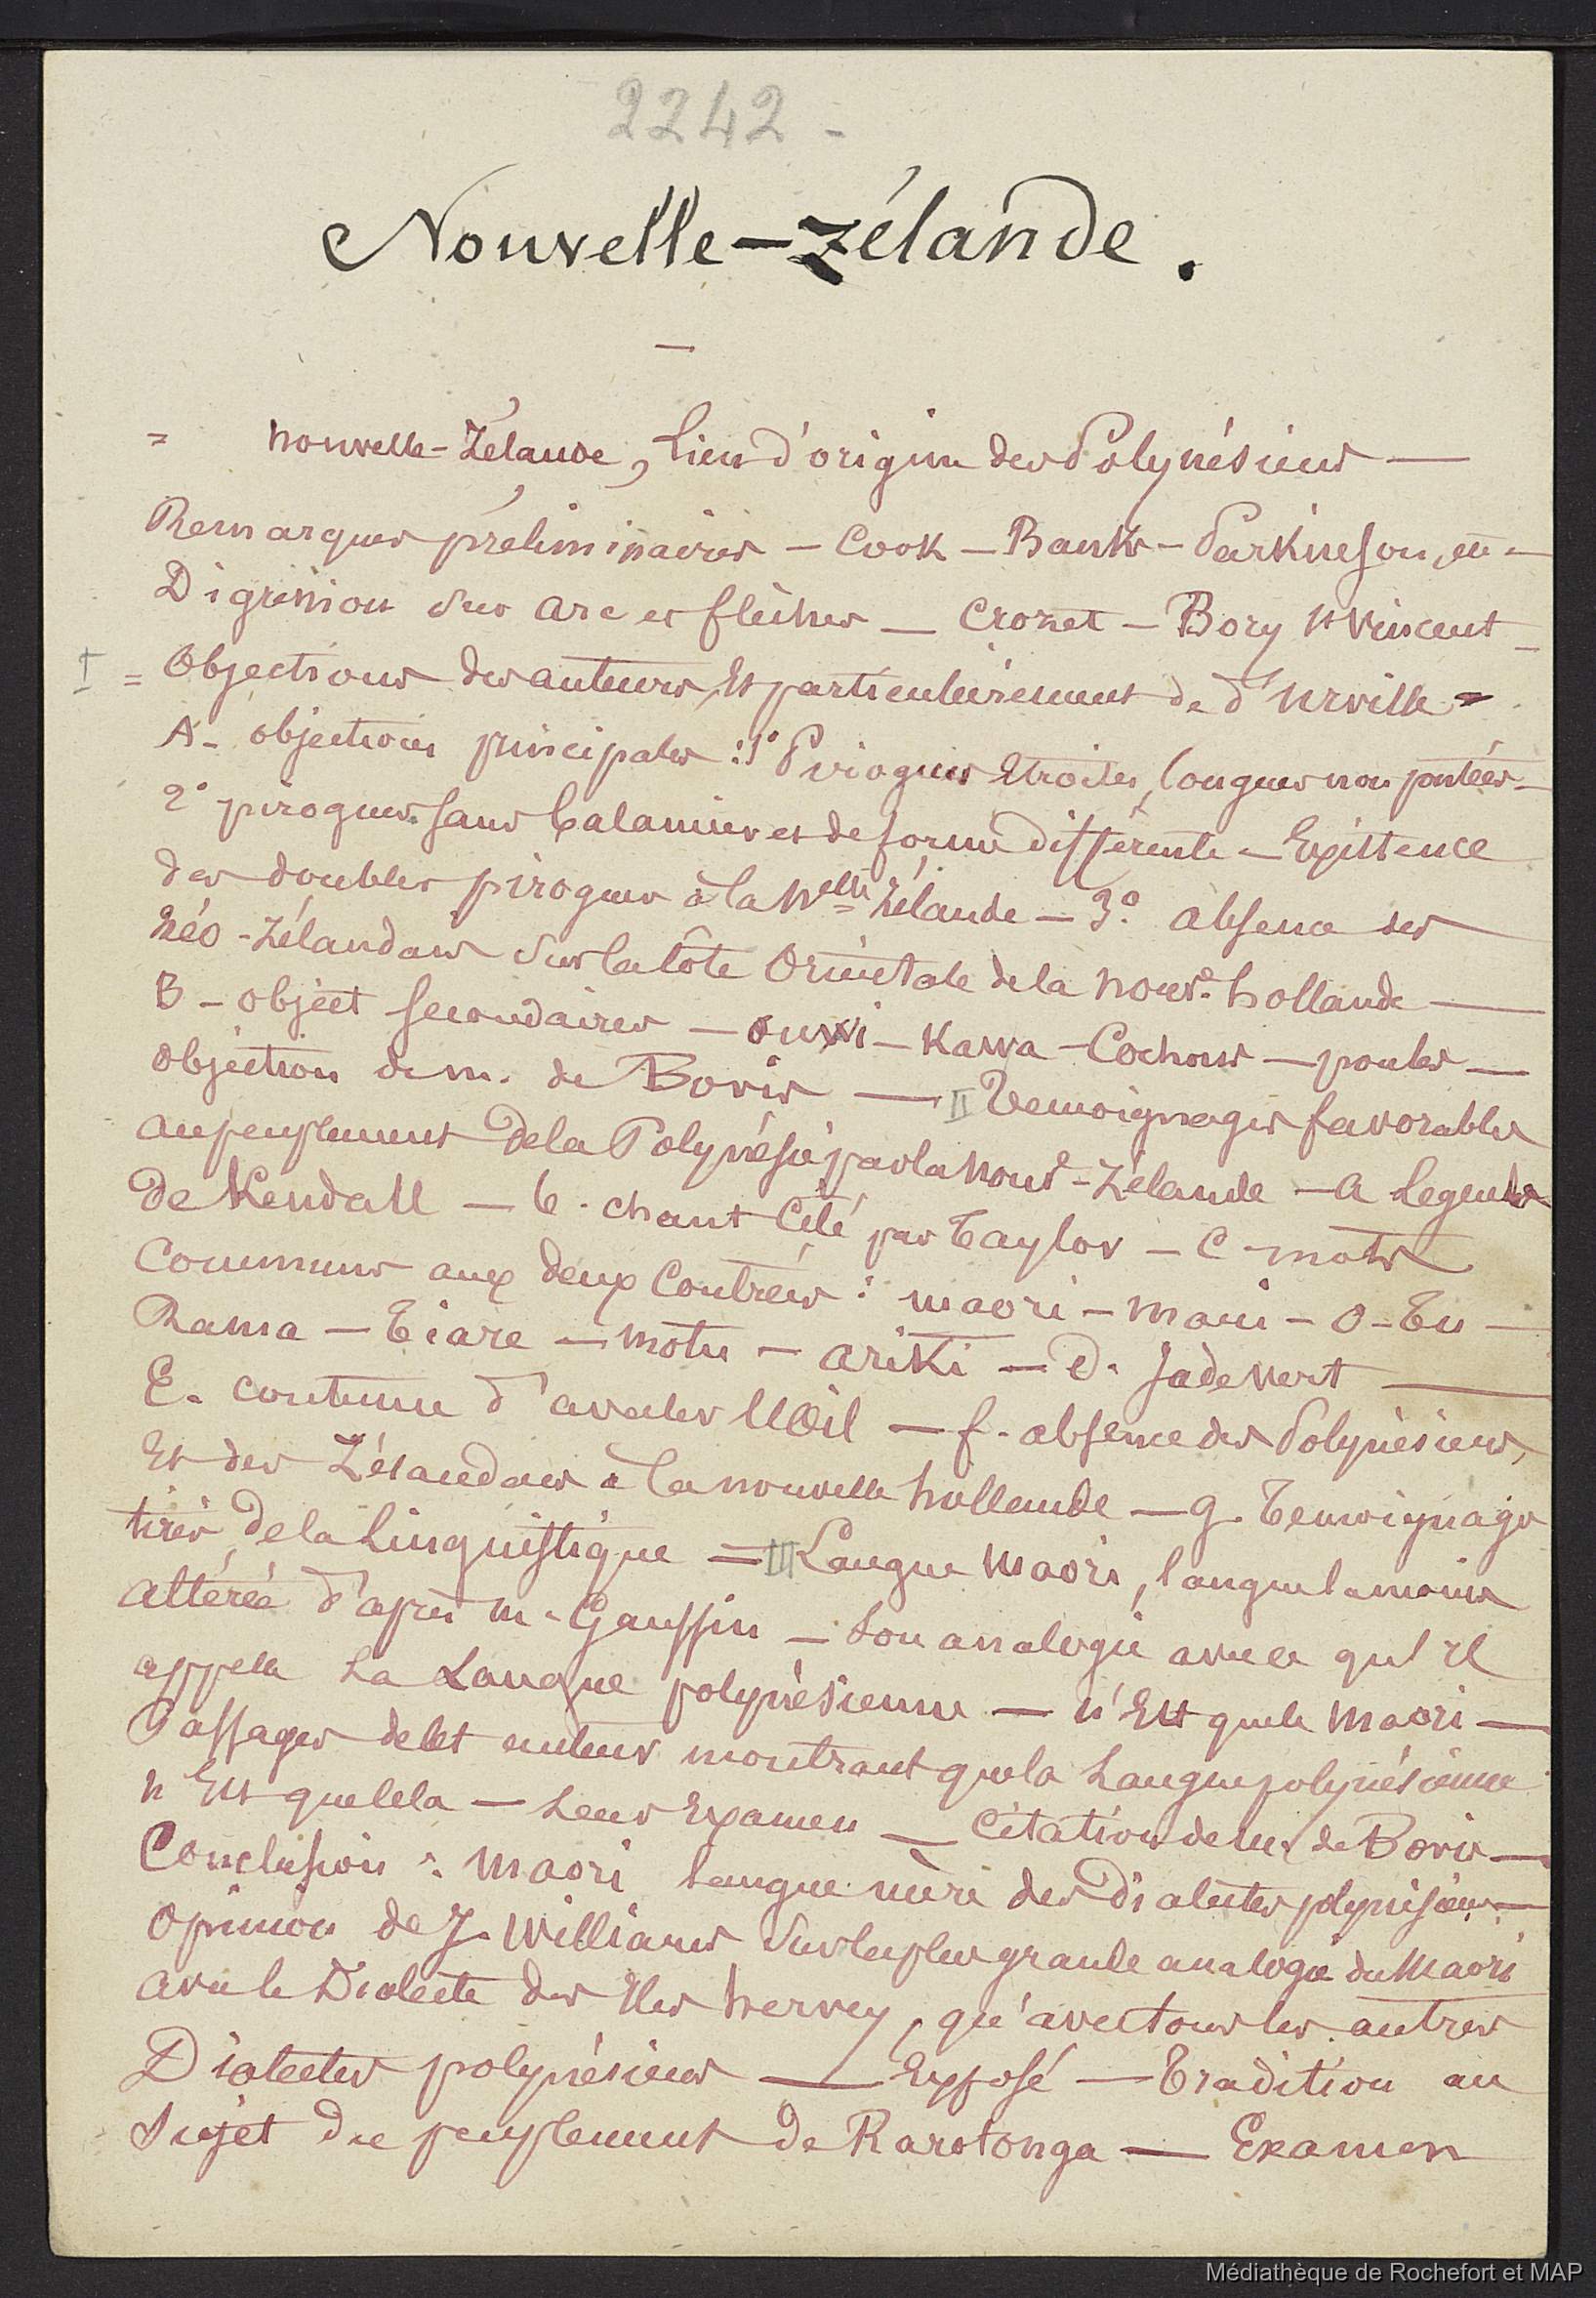 2242 -
Nouvelle-Zélande.
—
= nouvelle-Zélande, lieu d'origine des Polynésiens —
Remarques préliminaires — Cook — Banks — Parkinson, etc —
Digression sur arc et flèches — Crozet — Bory St Vincent —
I = Objections des auteurs, Et particulièrement de d'Urville =
A - objections principales : 1° Pirogues Etroites, longues non pontées —
2° pirogues sans balanciers et de forme différente — Existence
des doubles pirogues à la Nelle Zélande — 3° absence des
Néo-Zélandais sur la Côte Orientale de la Nouve hollande —
B - object secondaires — ouwi — Kawa — Cochons — poules —
objection de m. de Bovis — II Temoignages favorables
au peuplement De la Polynésie par la Nouve-Zélande — a Legendes
de Kendall — b. chant Cité par Taylor — C - mots
Communs aux deux Contrées : maori — maui — O-Tu —
Rama — Tiare — motu — ariki — d. Jade vert —
E. coutume d'avaler l'Oeil — f. absence des Polynésiens,
Et des Zélandais à la nouvelle hollande — g. Temoignages
tirés de la Linguistique = III Langue Maori, langue la moins
altérée d'après m. Gaussin — Son analogie avec ce qu'il
appelle La Langue polynésienne — n'Est que le Maori —
Passages de cet auteur montrant que la Langue polynésienne
n'Est que cela — Leur Examen — Citation de m. de Bovis —
Conclusion : Maori langue mère des Dialectes polynésiens —
Opinion de J. Williams sur la plus grande analogie du Maori
avec le Dialecte des Iles hervey, qu'avec tous les autres
Dialectes polynésiens — Exposé — Tradition au
Sujet du peuplement de Rarotonga — Examen
Médiathèque de Rochefort et MAP